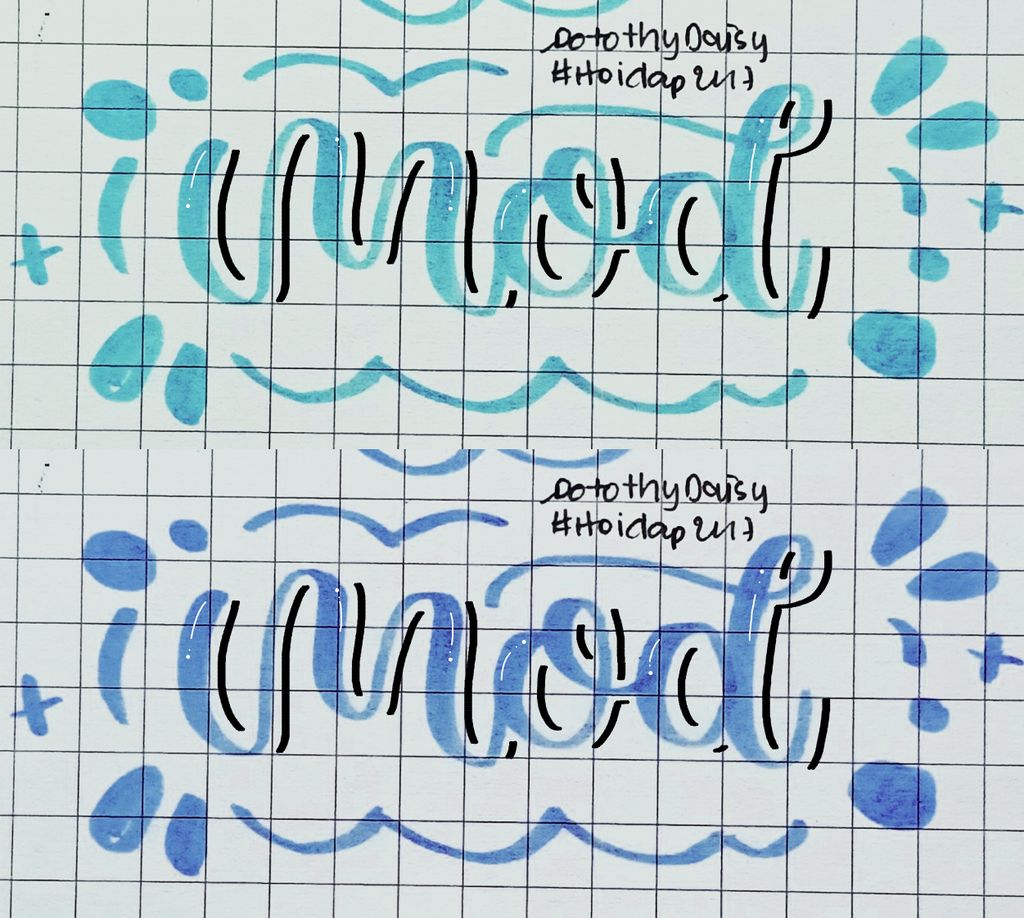 DotothyDaisy
#Hoidap247
mod
DotothyDaisy
#Hoidap247
mod